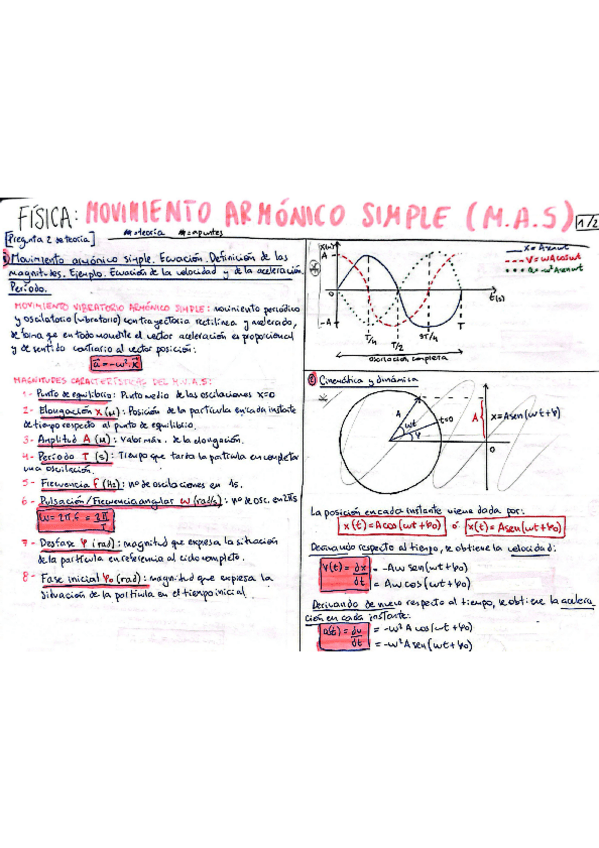 FÍSICA: MOVIMIENTO ARMÓNICO SIMPLE (M.A.S) 1/2
[Pregunta 2 de teoría] =teoría =apuntes
① Movimiento armónico simple. Ecuación. Definición de las
magnitudes. Ejemplo. Ecuación de la velocidad y de la aceleración.
Período.
MOVIMIENTO VIBRATORIO ARMÓNICO SIMPLE: movimiento periódico
y oscilatorio (vibratorio) con trayectoria rectilínea y acelerado,
de forma que en todo momento el vector aceleración es proporcional
y de sentido contrario al vector posición:
a⃗ = -ω²·x⃗
MAGNITUDES CARACTERÍSTICAS DEL M.V.A.S:
1- Punto de equilibrio: Punto medio de las oscilaciones x=0
2- Elongación X (m): Posición de la partícula en cada instante
de tiempo respecto al punto de equilibrio.
3- Amplitud A (m): Valor máx. de la elongación.
4- Período T (s): Tiempo que tarda la partícula en completar
una oscilación.
5- Frecuencia f (Hz): nº de oscilaciones en 1s.
6- Pulsación/Frecuencia angular ω (rad/s): nº de osc. en 2πs
ω = 2π·f = 2π/T
7- Desfase φ (rad): magnitud que expresa la situación
de la partícula en referencia al ciclo completo.
8- Fase inicial φ₀ (rad): magnitud que expresa la
situación de la partícula en el tiempo inicial.
x = A sen ωt
v = ωA cos ωt
a = -ω²A sen ωt
A
0
-A
T/4
T/2
3T/4
T
t(s)
oscilación completa
② Cinemática y dinámica
A
ωt
t=0
φ
A
x = A sen(ωt+φ)
0
La posición en cada instante viene dada por:
x(t) = A cos(ωt+φ₀) ó x(t) = A sen(ωt+φ₀)
Derivando respecto al tiempo, se obtiene la velocidad:
v(t) = ∂x/∂t = -Aω sen(ωt+φ₀)
= Aω cos(ωt+φ₀)
Derivando de nuevo respecto al tiempo, se obtiene la acelera-
ción en cada instante:
a(t) = ∂v/∂t = -ω²A cos(ωt+φ₀)
= -ω²A sen(ωt+φ₀)